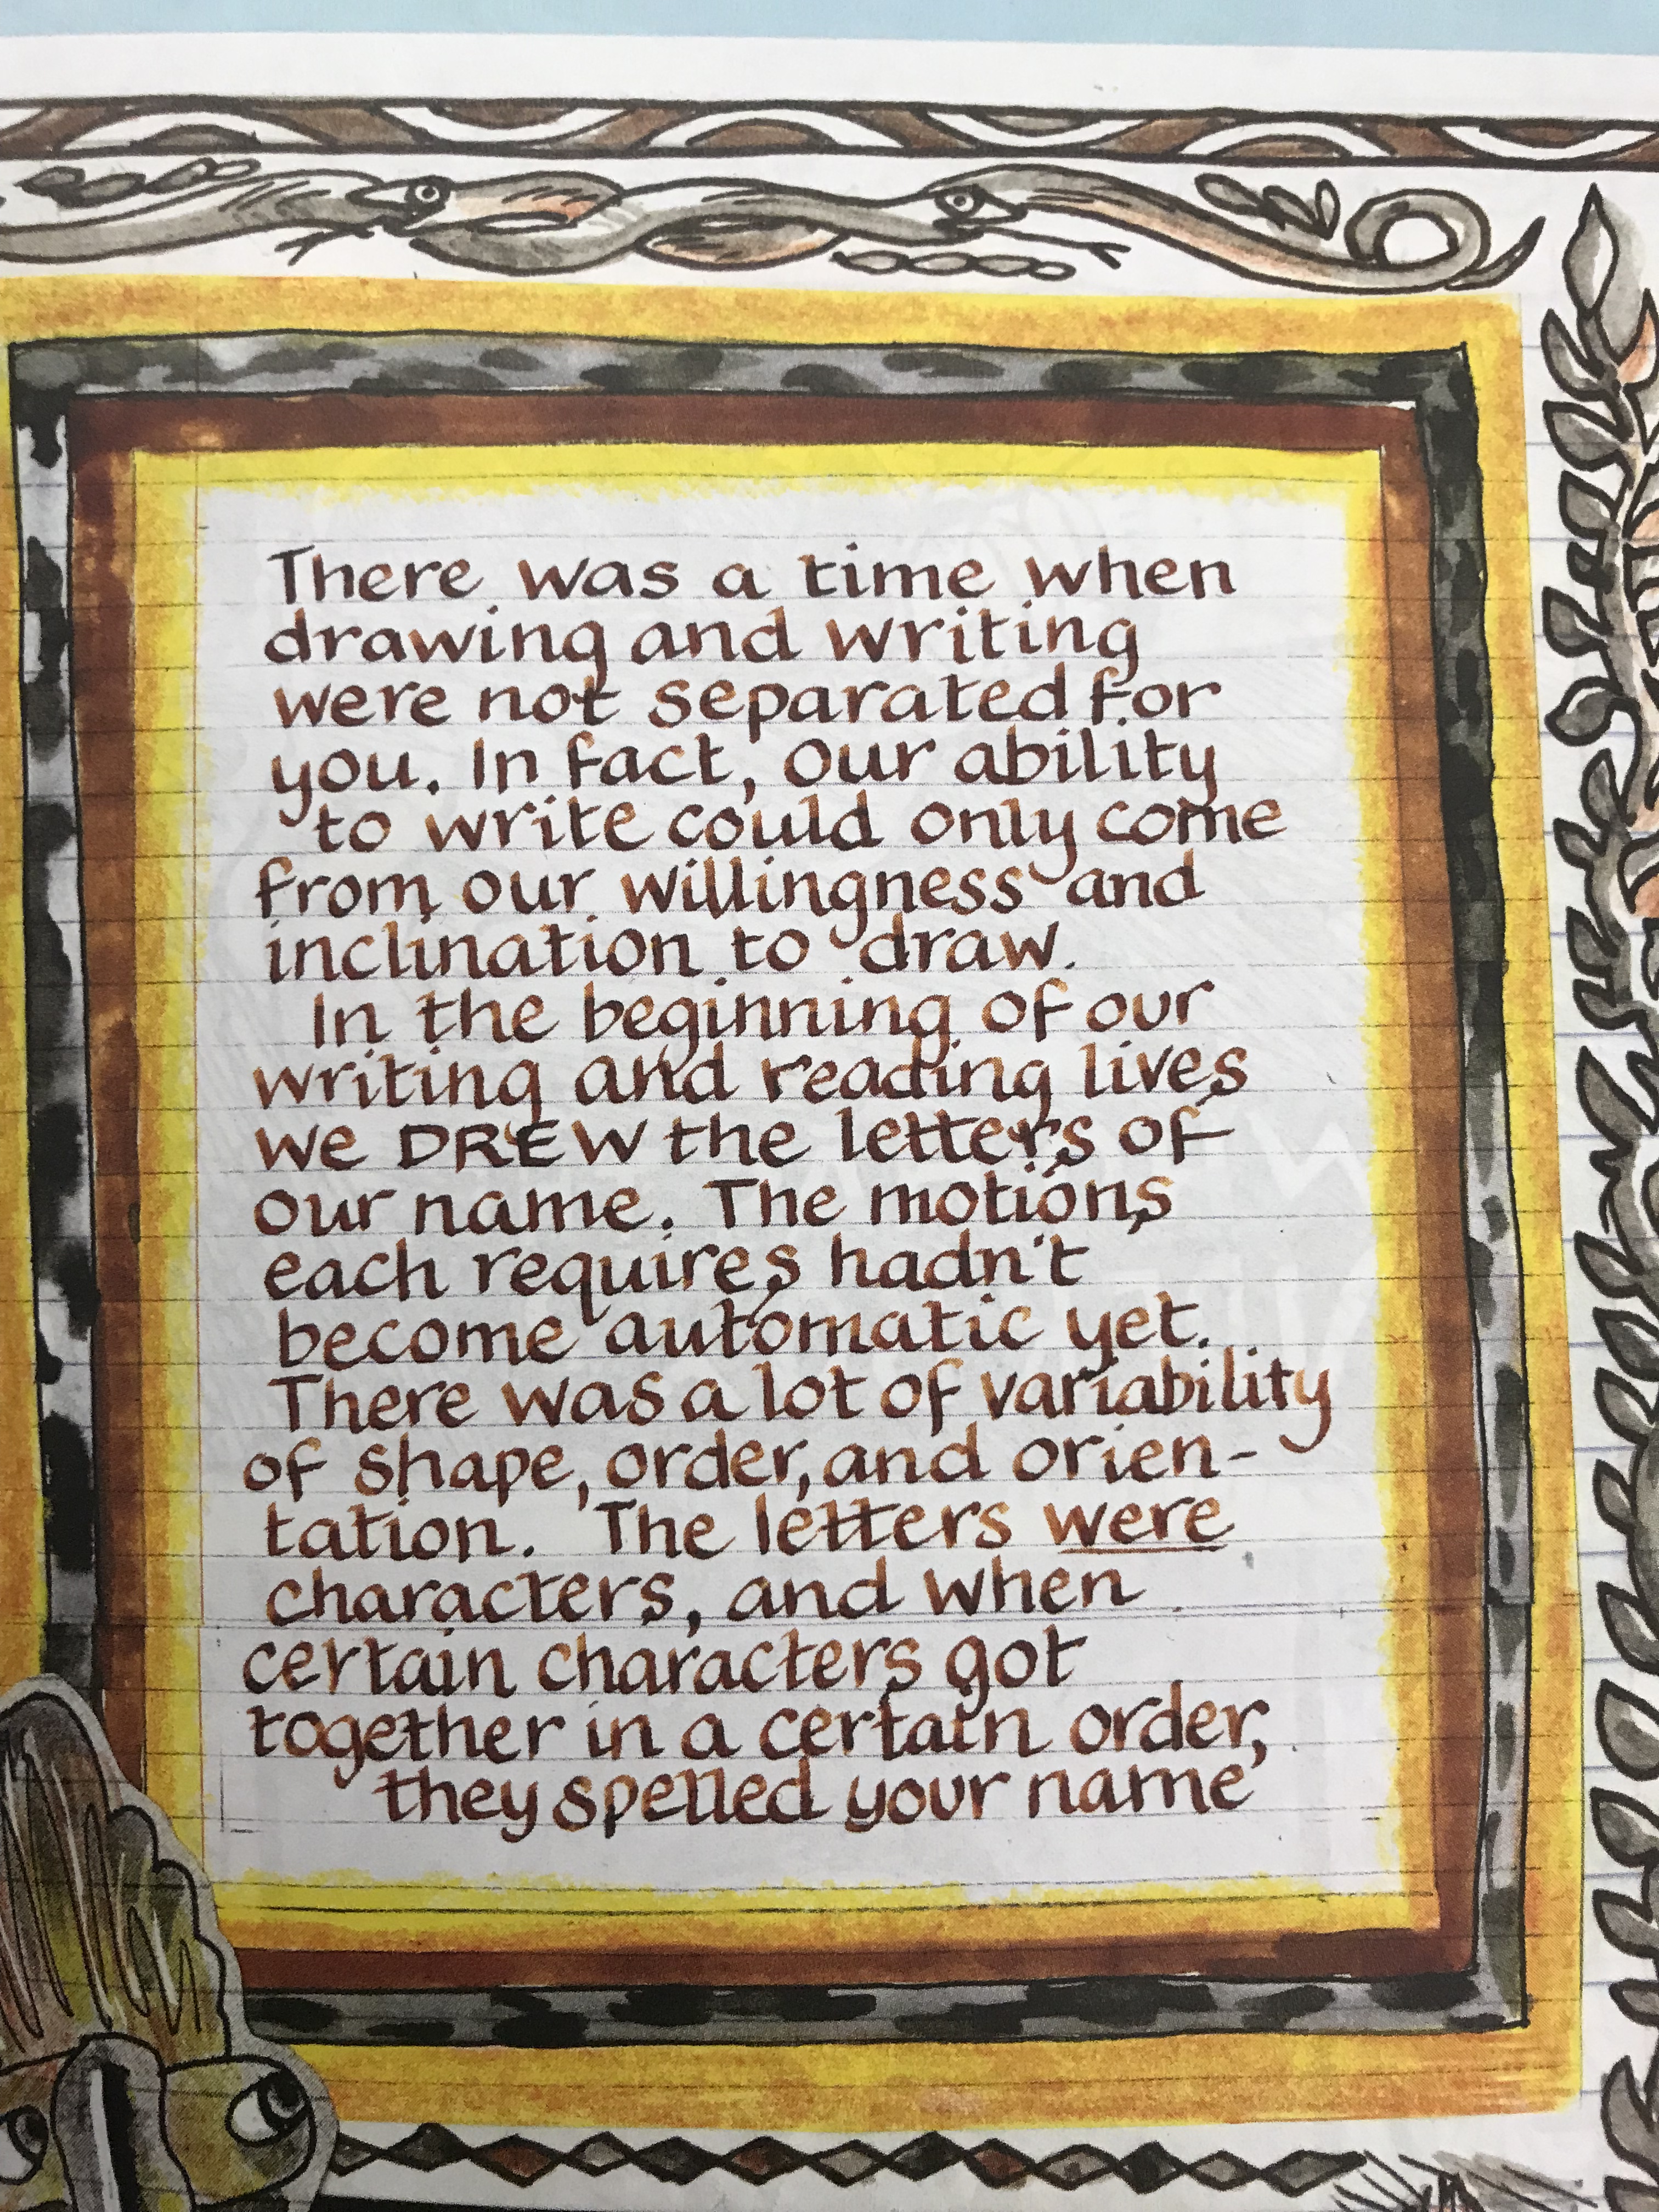 There was a time when
drawing and writing
were not separated for
you. In fact, our ability
to write could only come
from our willingness and
inclination to draw.
In the beginning of our
writing and reading lives
we DREW the letters of
our name. The motions
each requires hadn't
become automatic yet.
There was a lot of variability
of shape, order, and orien-
tation. The letters were
characters, and when
certain characters got
together in a certain order,
they spelled your name